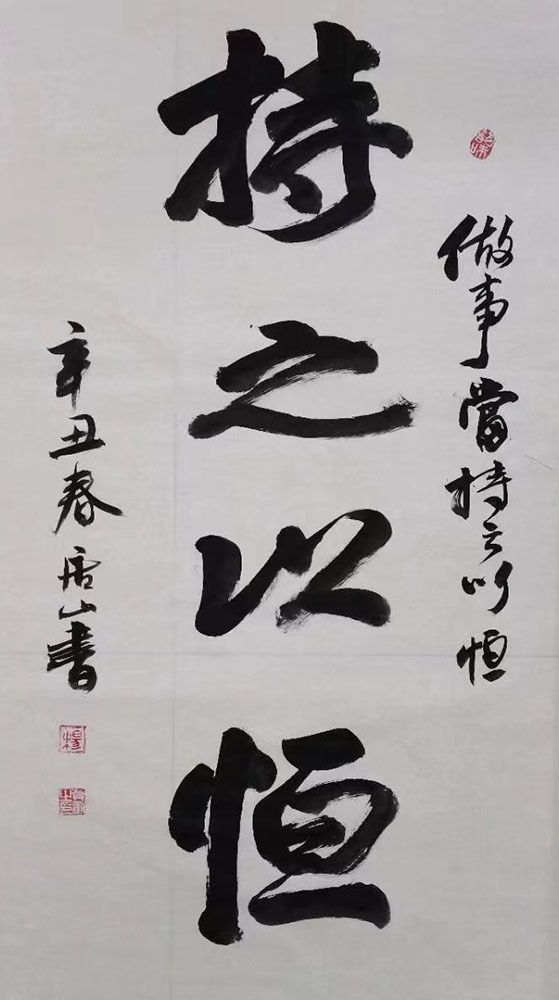 做事當持之以恒
持之以恒
辛丑春居山書